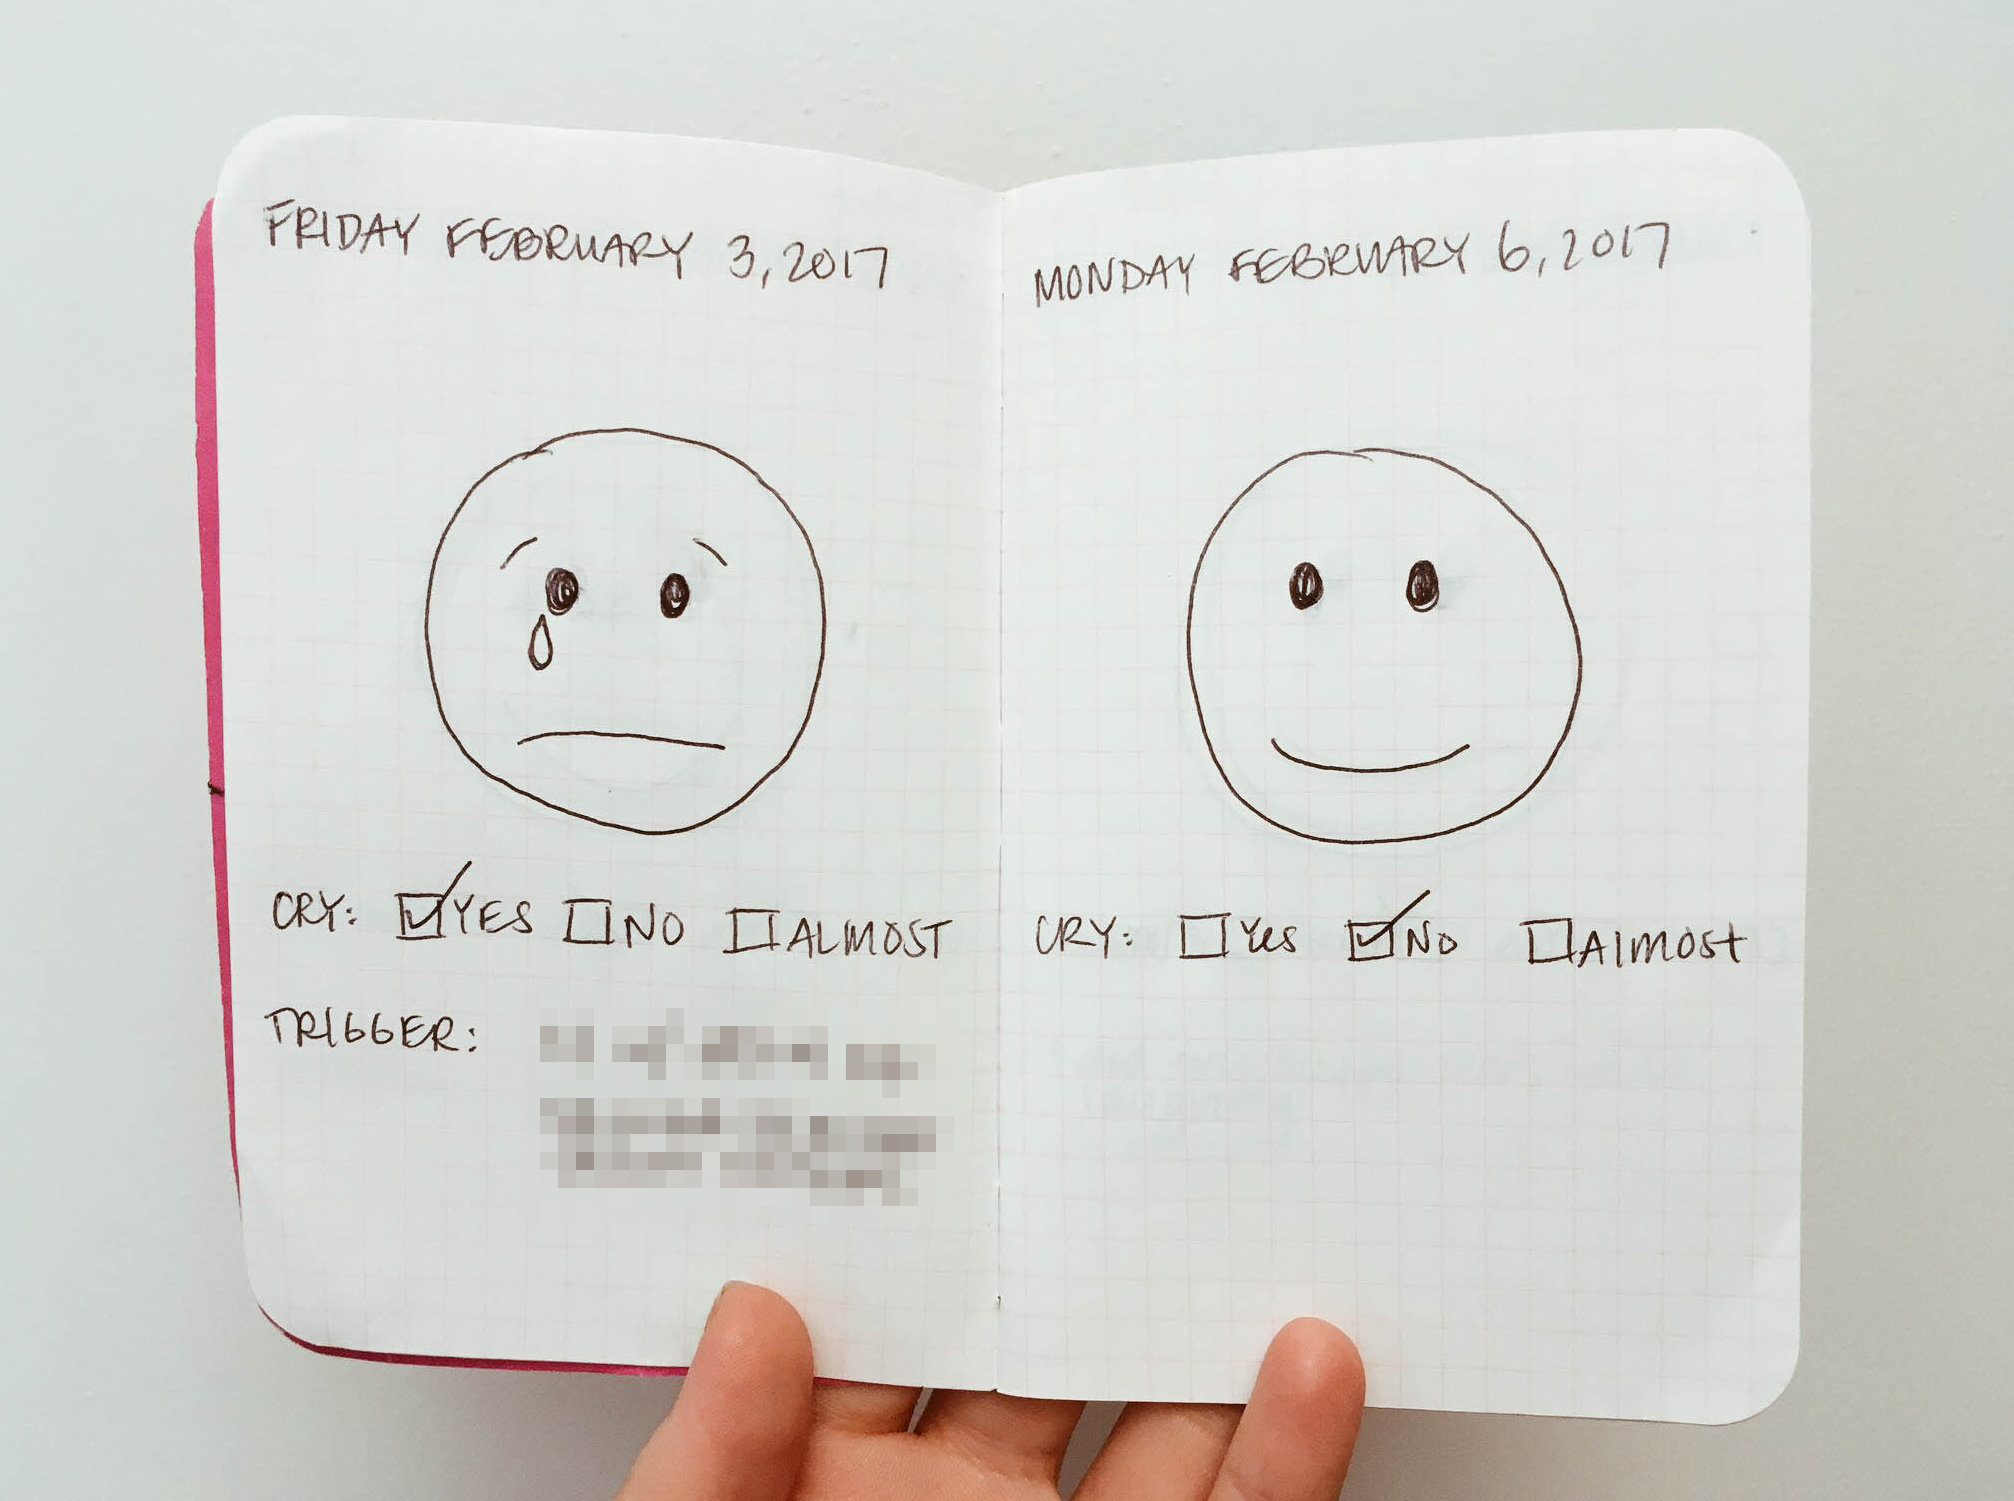 FRIDAY FEBRUARY 3, 2017
CRY: YES NO ALMOST
TRIGGER:
MONDAY FEBRUARY 6, 2017
CRY: Yes No Almost